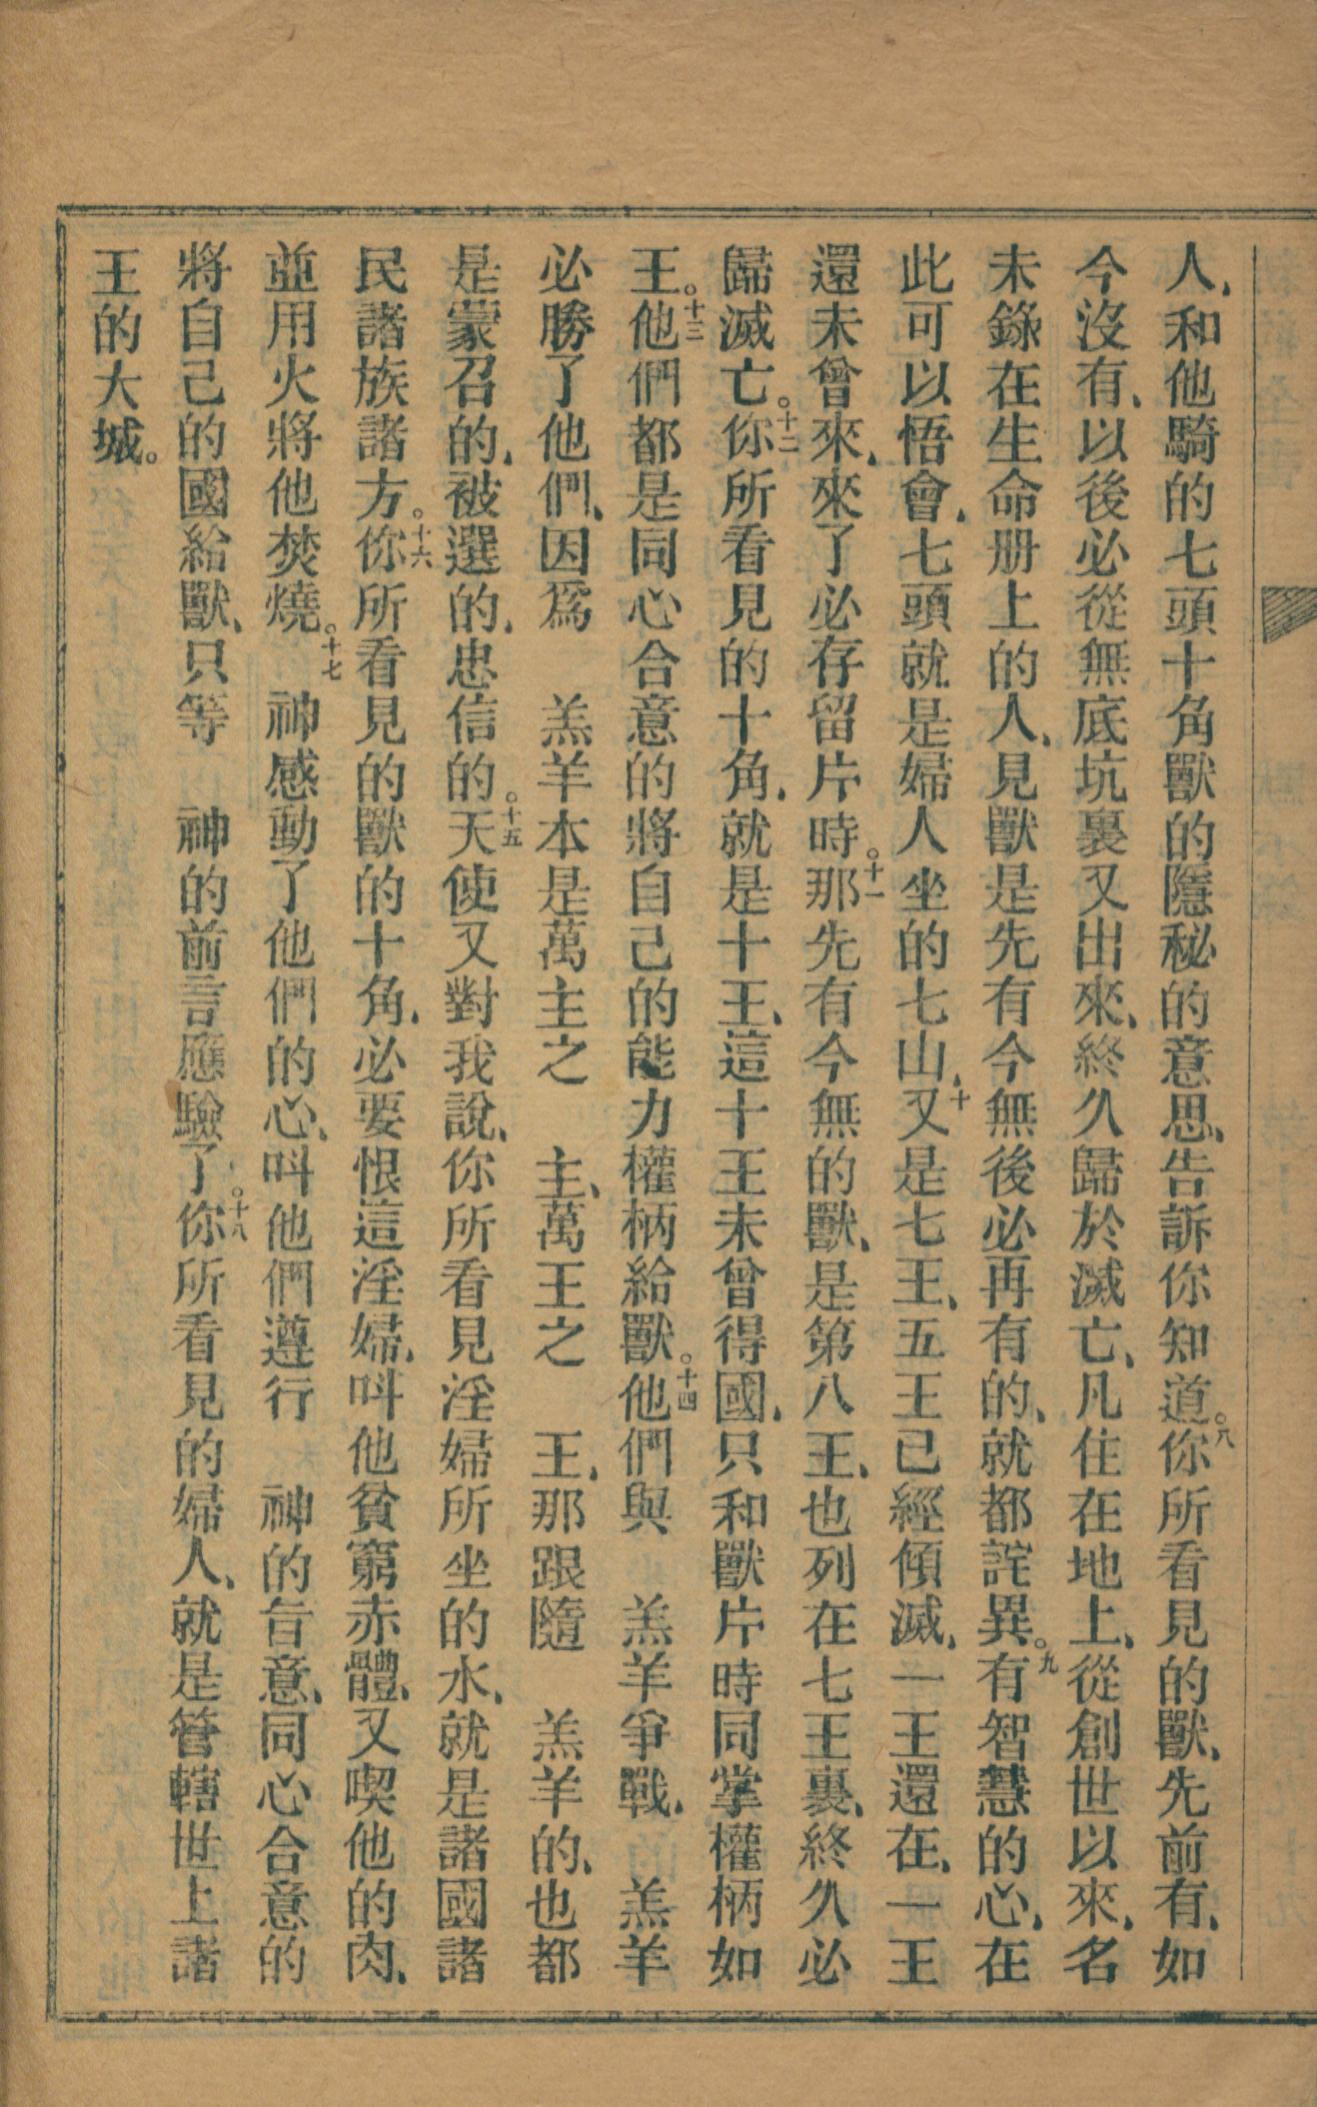 人、和他騎的七頭十角獸的隱秘的意思、告訴你知道。八你所看見的獸、先前有、如
今沒有、以後必從無底坑裏又出來、終久歸於滅亡、凡住在地上、從創世以來、名
未錄在生命册上的人、見獸是先有今無後必再有的、就都詫異。九有智慧的心、在
此可以悟會、七頭就是婦人坐的七山、十又是七王、五王已經傾滅、一王還在、一王
還未曾來、來了必存留片時。十一那先有今無的獸、是第八王、也列在七王裏、終久必
歸滅亡。十二你所看見的十角、就是十王、這十王未曾得國、只和獸片時同掌權柄如
王。十三他們都是同心合意的將自己的能力權柄給獸。十四他們與　羔羊爭戰、　羔羊
必勝了他們、因爲　羔羊本是萬主之　主、萬王之　王、那跟隨　羔羊的、也都
是蒙召的、被選的、忠信的。十五天使又對我說、你所看見淫婦所坐的水、就是諸國諸
民諸族諸方。十六你所看見的獸的十角、必要恨這淫婦、呌他貧窮赤體、又喫他的肉、
並用火將他焚燒。十七　神感動了他們的心、呌他們遵行　神的旨意、同心合意的
將自己的國給獸、只等　神的前言應驗了。十八你所看見的婦人、就是管轄世上諸
王的大城。